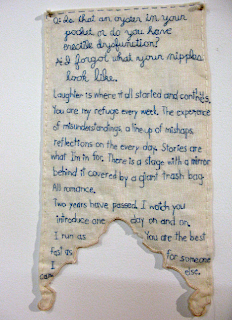 Q: Is that an oyster in your
pocket or do you have
erectile dysfunction?
A: I forgot what your nipples
look like.
Laughter is where it all started and
You are my refuge every week. The experience
of misunderstandings, a line up of mishaps,
reflections on the every day. Stories are
what I'm in for. There is a stage with a mirror
behind it covered by a giant trash bag
All romance.
Two years have passed. I watch you
introduce one day on and on.
I run as You are the best
fast as for someone
I else.
can